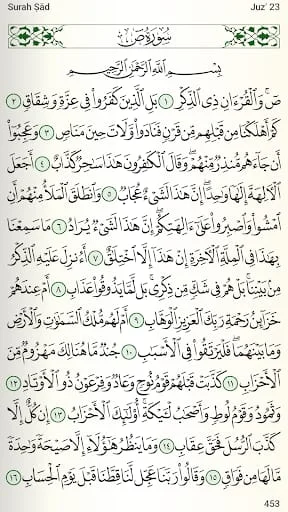 Surah Ṣād Juz' 23
سُورَةُ صٓ
بِسْمِ ٱللَّهِ ٱلرَّحْمَٰنِ ٱلرَّحِيمِ
صٓ ۚ وَٱلْقُرْءَانِ ذِى ٱلذِّكْرِ ١ بَلِ ٱلَّذِينَ كَفَرُوا۟ فِى عِزَّةٍ وَشِقَاقٍ ٢
كَمْ أَهْلَكْنَا مِن قَبْلِهِم مِّن قَرْنٍ فَنَادَوا۟ وَّلَاتَ حِينَ مَنَاصٍ ٣ وَعَجِبُوٓا۟
أَن جَآءَهُم مُّنذِرٌ مِّنْهُمْ ۖ وَقَالَ ٱلْكَٰفِرُونَ هَٰذَا سَٰحِرٌ كَذَّابٌ ٤ أَجَعَلَ
ٱلْءَالِهَةَ إِلَٰهًا وَٰحِدًا ۖ إِنَّ هَٰذَا لَشَىْءٌ عُجَابٌ ٥ وَٱنطَلَقَ ٱلْمَلَأُ مِنْهُمْ أَنِ
ٱمْشُوا۟ وَٱصْبِرُوا۟ عَلَىٰٓ ءَالِهَتِكُمْ ۖ إِنَّ هَٰذَا لَشَىْءٌ يُرَادُ ٦ مَا سَمِعْنَا
بِهَٰذَا فِى ٱلْمِلَّةِ ٱلْءَاخِرَةِ إِنْ هَٰذَآ إِلَّا ٱخْتِلَٰقٌ ٧ أَءُنزِلَ عَلَيْهِ ٱلذِّكْرُ
مِنۢ بَيْنِنَا ۚ بَلْ هُمْ فِى شَكٍّ مِّن ذِكْرِى ۖ بَل لَّمَّا يَذُوقُوا۟ عَذَابِ ٨ أَمْ عِندَهُمْ
خَزَآئِنُ رَحْمَةِ رَبِّكَ ٱلْعَزِيزِ ٱلْوَهَّابِ ٩ أَمْ لَهُم مُّلْكُ ٱلسَّمَٰوَٰتِ وَٱلْأَرْضِ
وَمَا بَيْنَهُمَا ۖ فَلْيَرْتَقُوا۟ فِى ٱلْأَسْبَٰبِ ١٠ جُندٌ مَّا هُنَالِكَ مَهْزُومٌ مِّنَ
ٱلْأَحْزَابِ ١١ كَذَّبَتْ قَبْلَهُمْ قَوْمُ نُوحٍ وَعَادٌ وَفِرْعَوْنُ ذُو ٱلْأَوْتَادِ ١٢
وَثَمُودُ وَقَوْمُ لُوطٍ وَأَصْحَٰبُ لْـَٔيْكَةِ ۚ أُو۟لَٰٓئِكَ ٱلْأَحْزَابُ ١٣ إِن كُلٌّ إِلَّا
كَذَّبَ ٱلرُّسُلَ فَحَقَّ عِقَابِ ١٤ وَمَا يَنظُرُ هَٰٓؤُلَآءِ إِلَّا صَيْحَةً وَٰحِدَةً
مَّا لَهَا مِن فَوَاقٍ ١٥ وَقَالُوا۟ رَبَّنَا عَجِّل لَّنَا قِطَّنَا قَبْلَ يَوْمِ ٱلْحِسَابِ ١٦
453